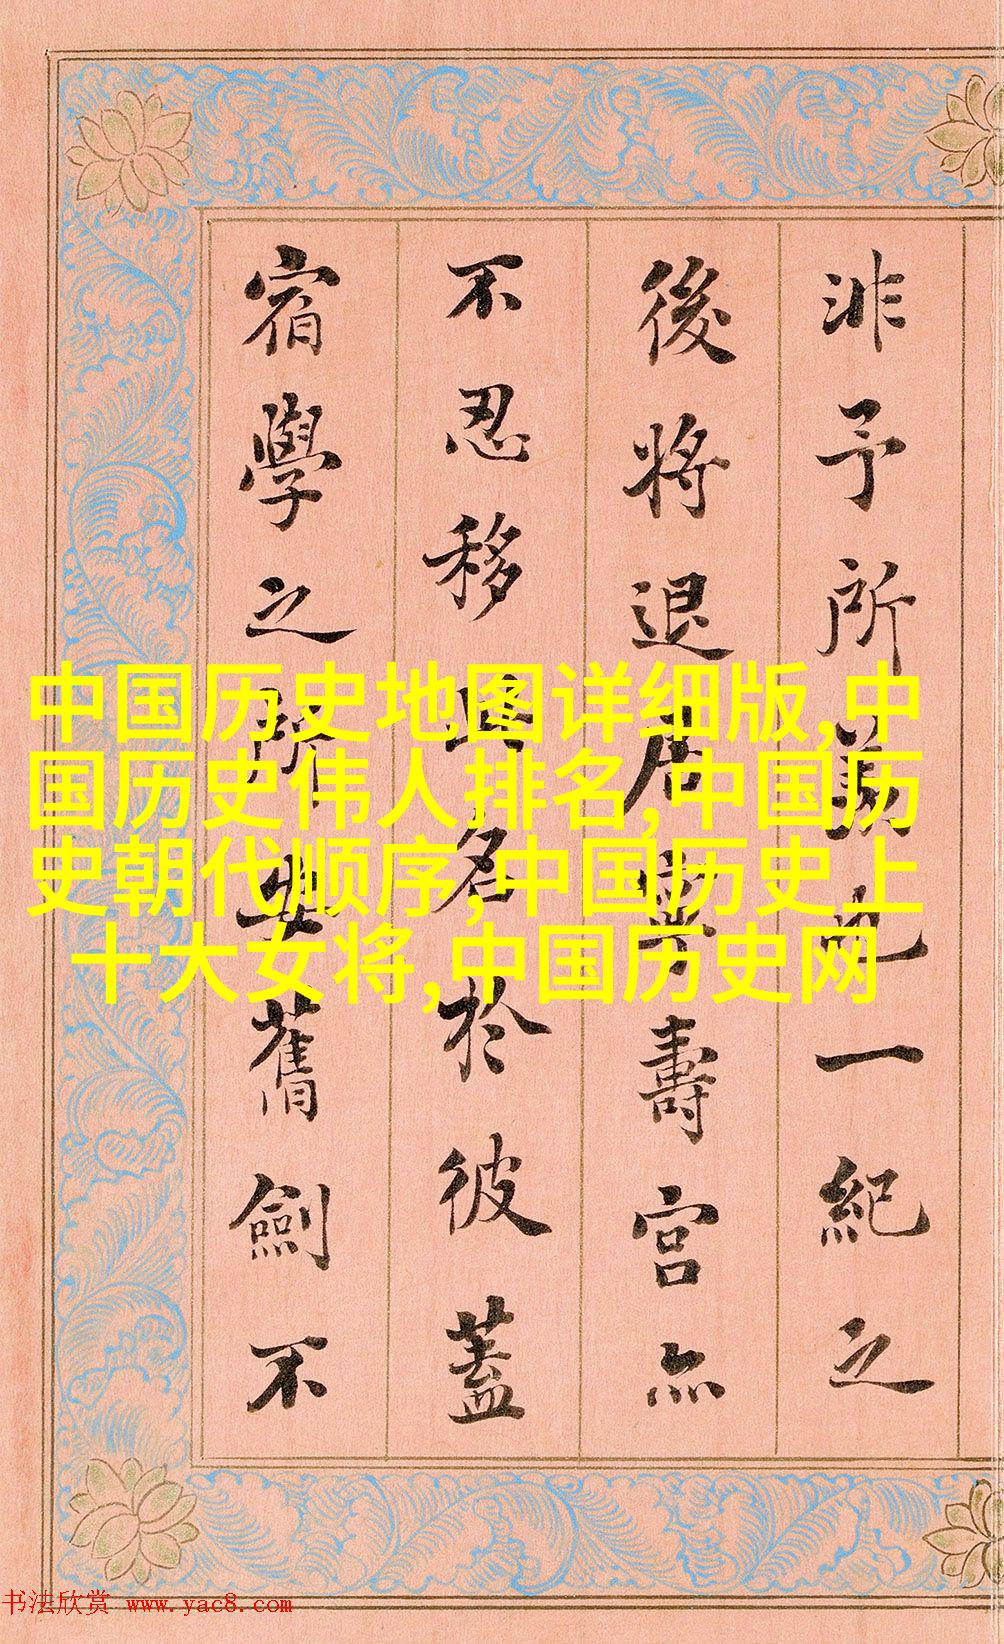 非予所也一紀之
後將退居寧壽宮亦
不忍移此名於彼蓋
宿學之所舊劍不
中国历史地图详细版,中
国历史伟人排名,中国历
史朝代顺序,中国历史上
十大女将,中国历史网
书法欣赏 www.yac8.com